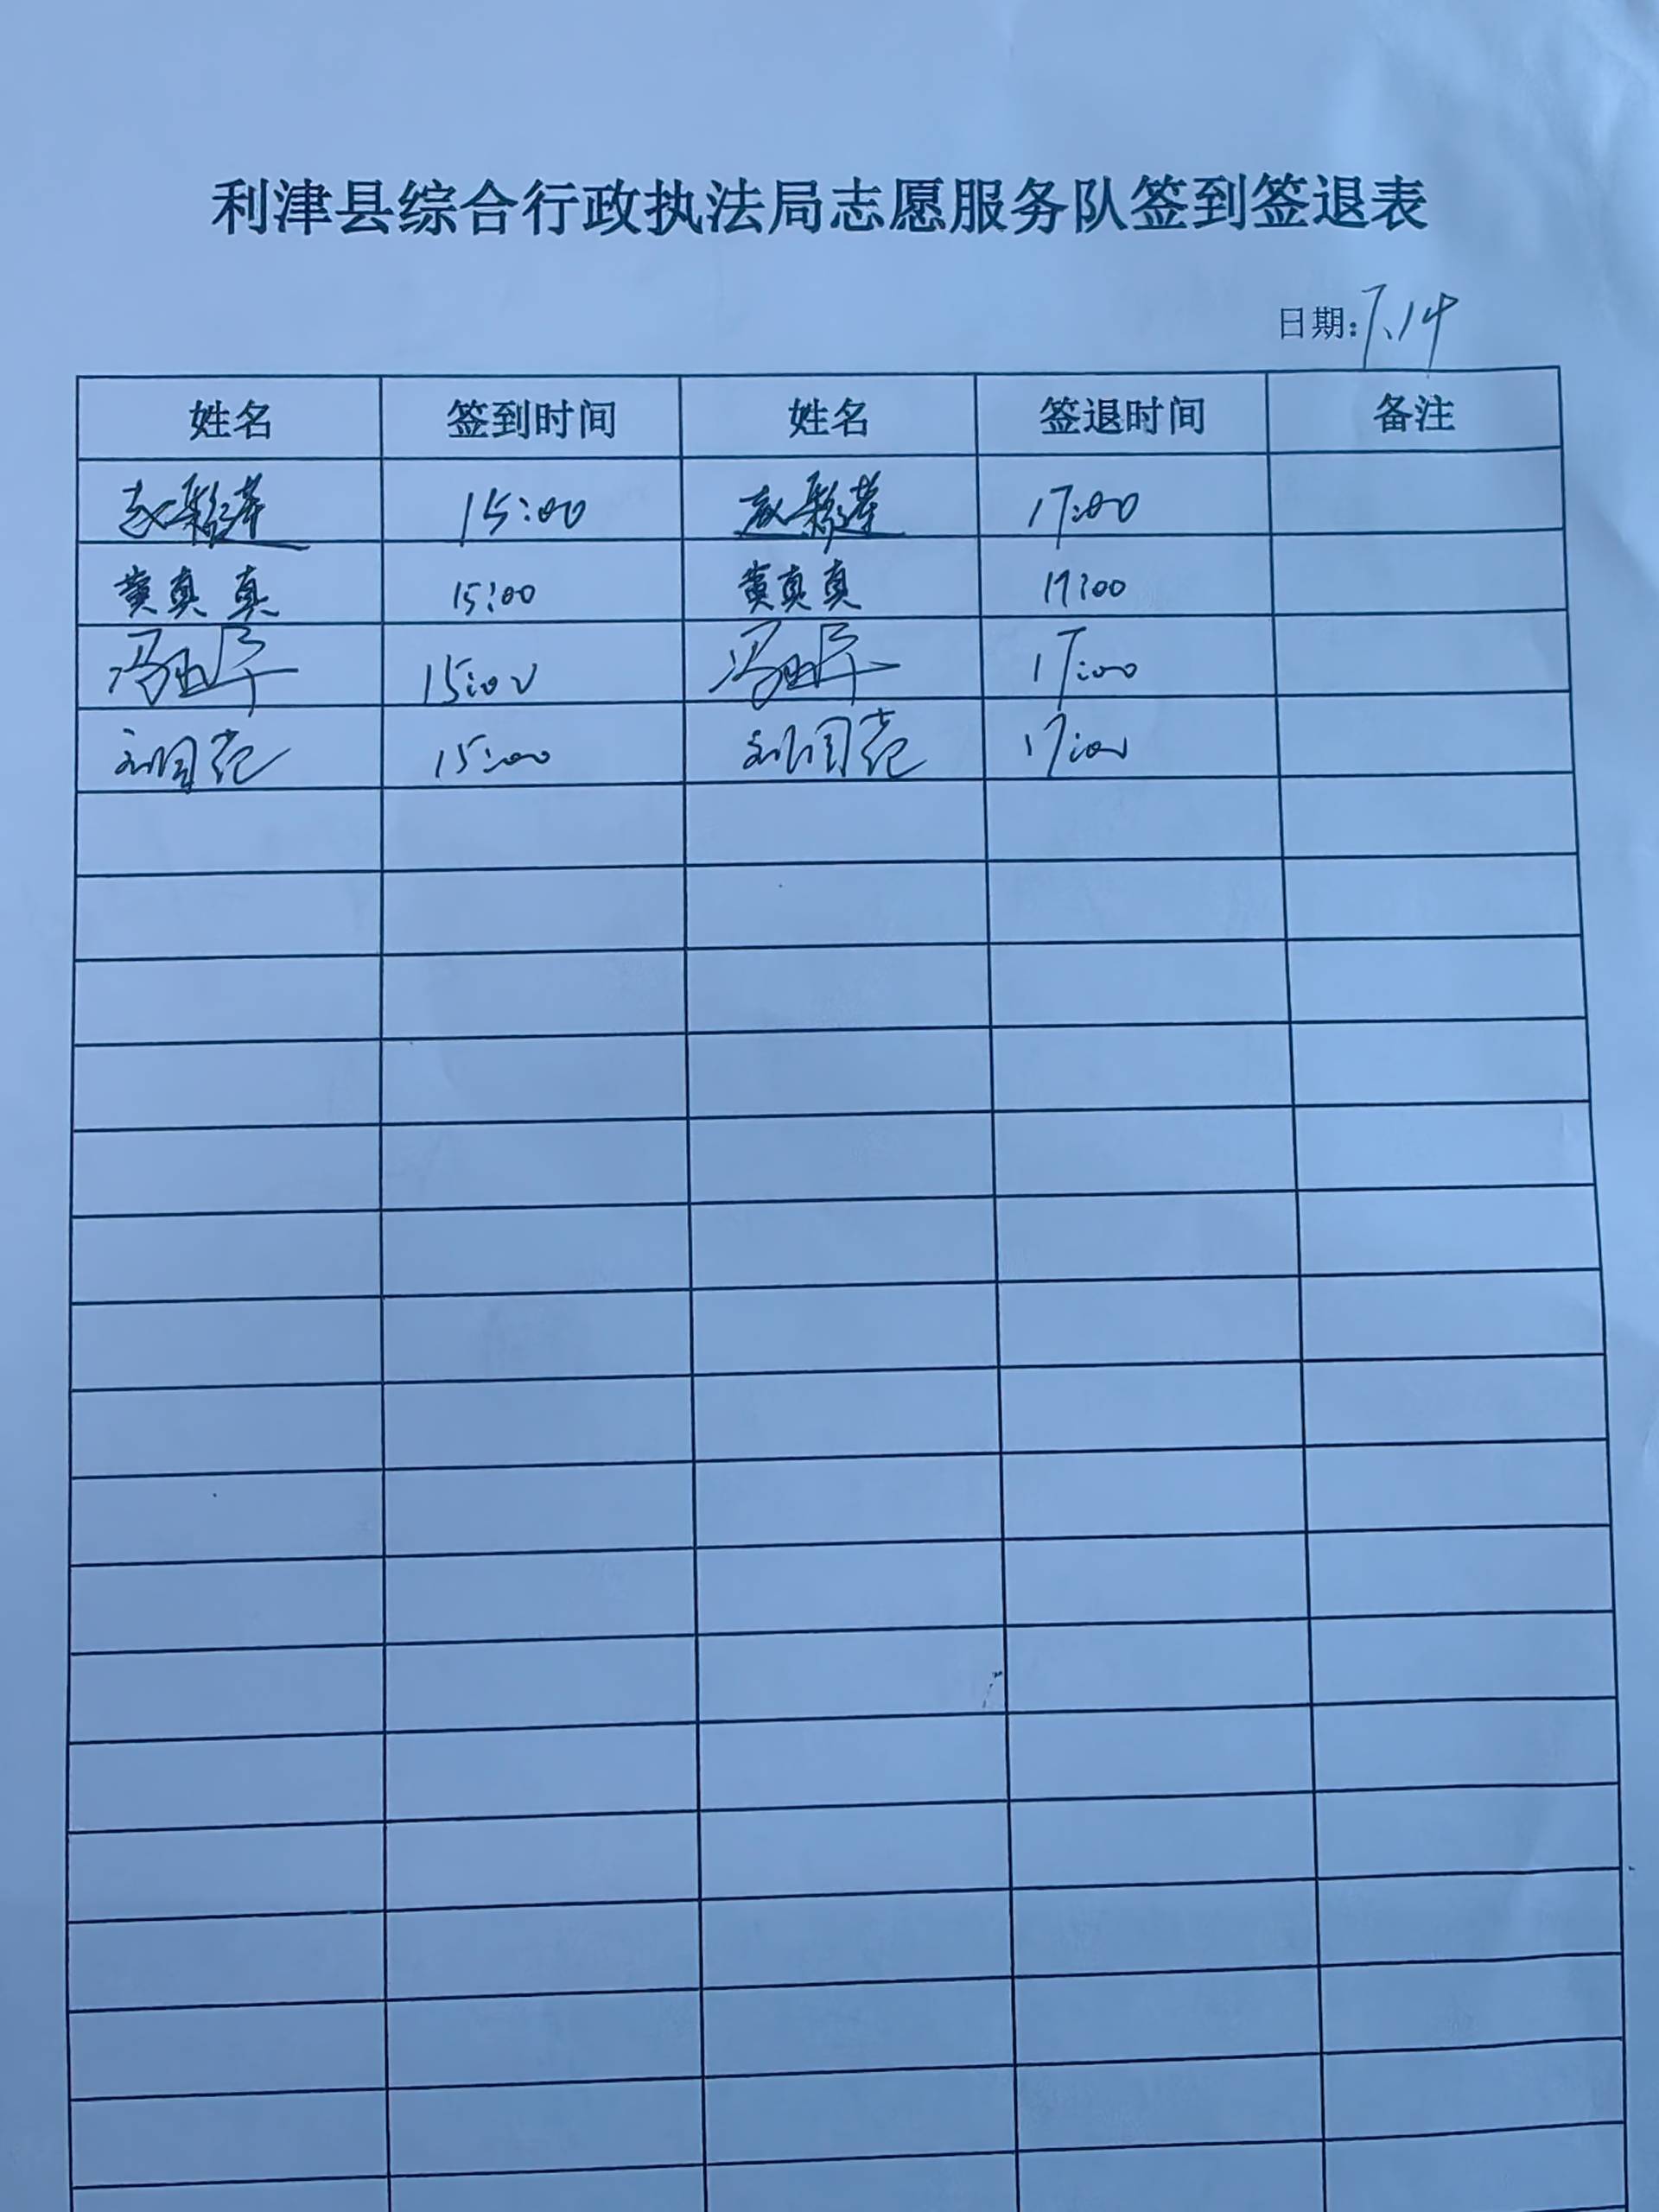 利津县综合行政执法局志愿服务队签到签退表
日期：7.14
姓名 签到时间 姓名 签退时间 备注
15:00 17:00
黄真真 15:00 黄真真 17:00
15:00 17:00
15:00 17:00